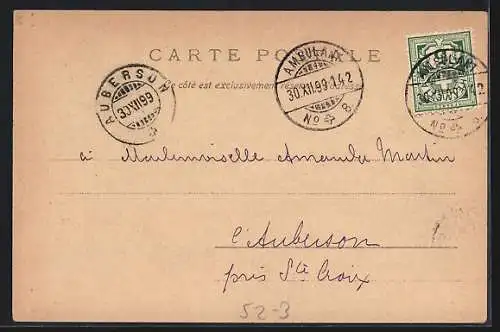 CARTE POSTALE
Ce côté est exclusivement réservé à l'adresse.
AUBERSON
30.XII.99
AMBULANT
30.XII.99.142
No 4
AMBULANT
No 4
à Mademoiselle Amanda Martin
l'Auberson
près Ste Croix
52-3